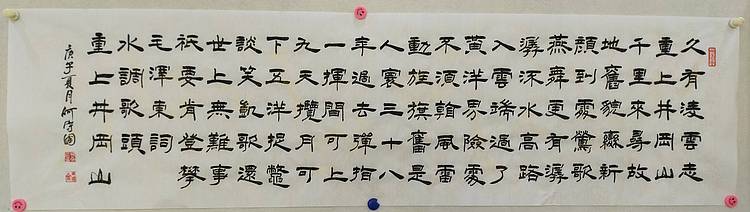 久有凌雲志
重上井岡山
千里來尋故
地舊貌變新
顏到處鶯歌
燕舞更有潺
潺流水高路
入雲端過了
黃洋界險處
不須看風雷
動旌旗奮是
人寰三十八
年過去彈指
一揮間可上
九天攬月可
下五洋捉鱉
談笑凱歌還
世上無難事
祇要肯登攀
毛澤東詞
水調歌頭
重上井岡山
庚子夏月何守